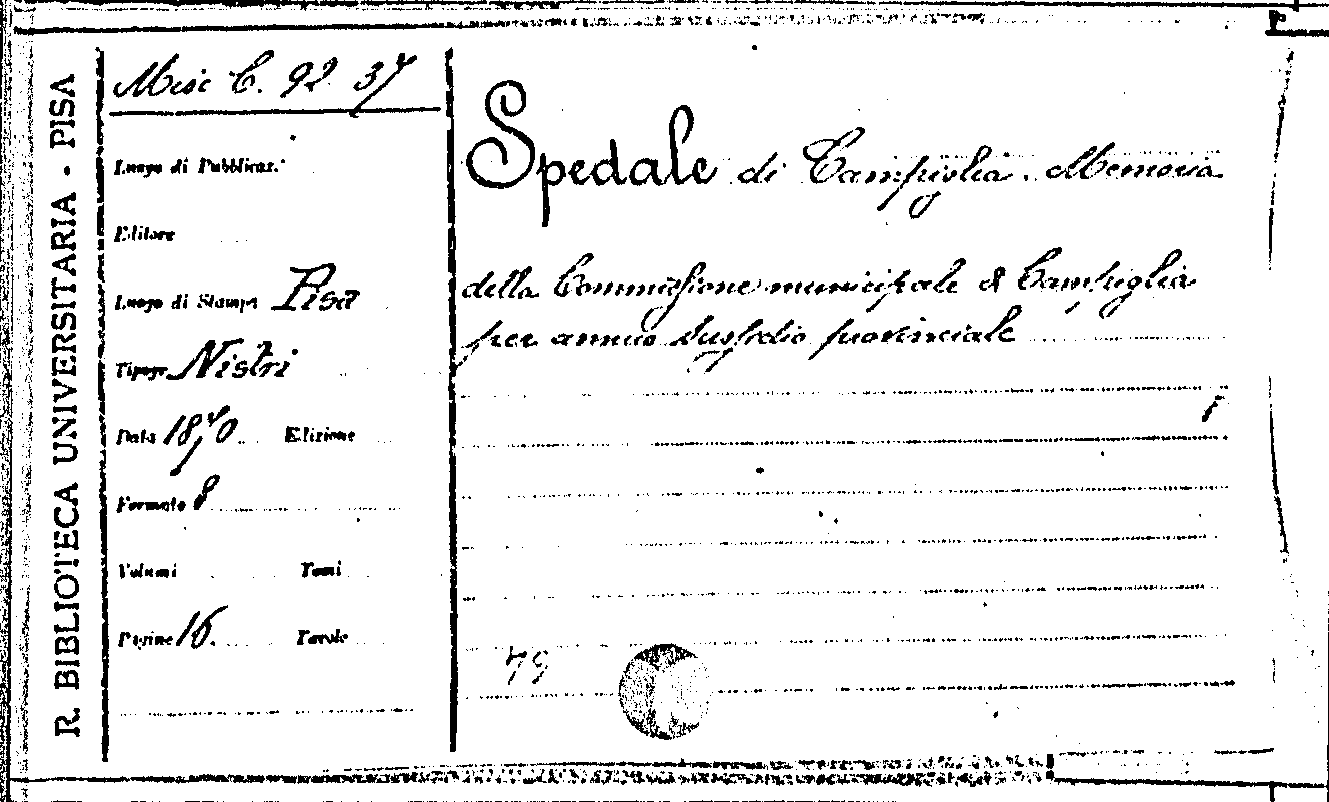 R. BIBLIOTECA UNIVERSITARIA - PISA
Misc C. 92. 37
Luogo di Pubblicaz.
Editore
Luogo di Stampa Pisa
Tipogr. Nistri
Data 1870 Edizione
Formato 8
Volumi Tomi
Pagine 16. Tavole
Spedale di Campiglia. Memoria
della Commissione municipale di Campiglia
per annuo sussidio provinciale
79